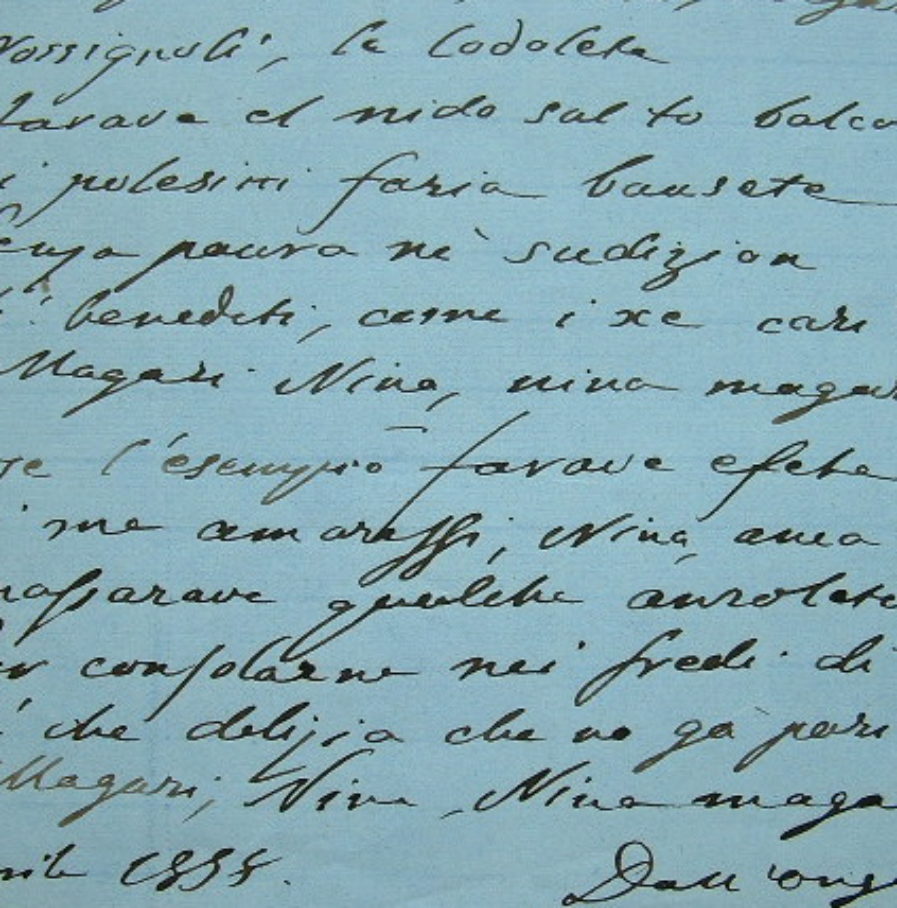 Rossignoli, la lodoleta
farave el nido sul to balco
i polesini faria bausete
enza paura nè sudizion
benedeti, come i xe cari
Magari Nina, nina magar
l'esempio farave efeto
me amaressi, Nina, anca
nassarave qualche anzoleto
consolarne nei fredi di
che delizia che no ga pari
Magari, Nina, Nina maga
Dall'ong